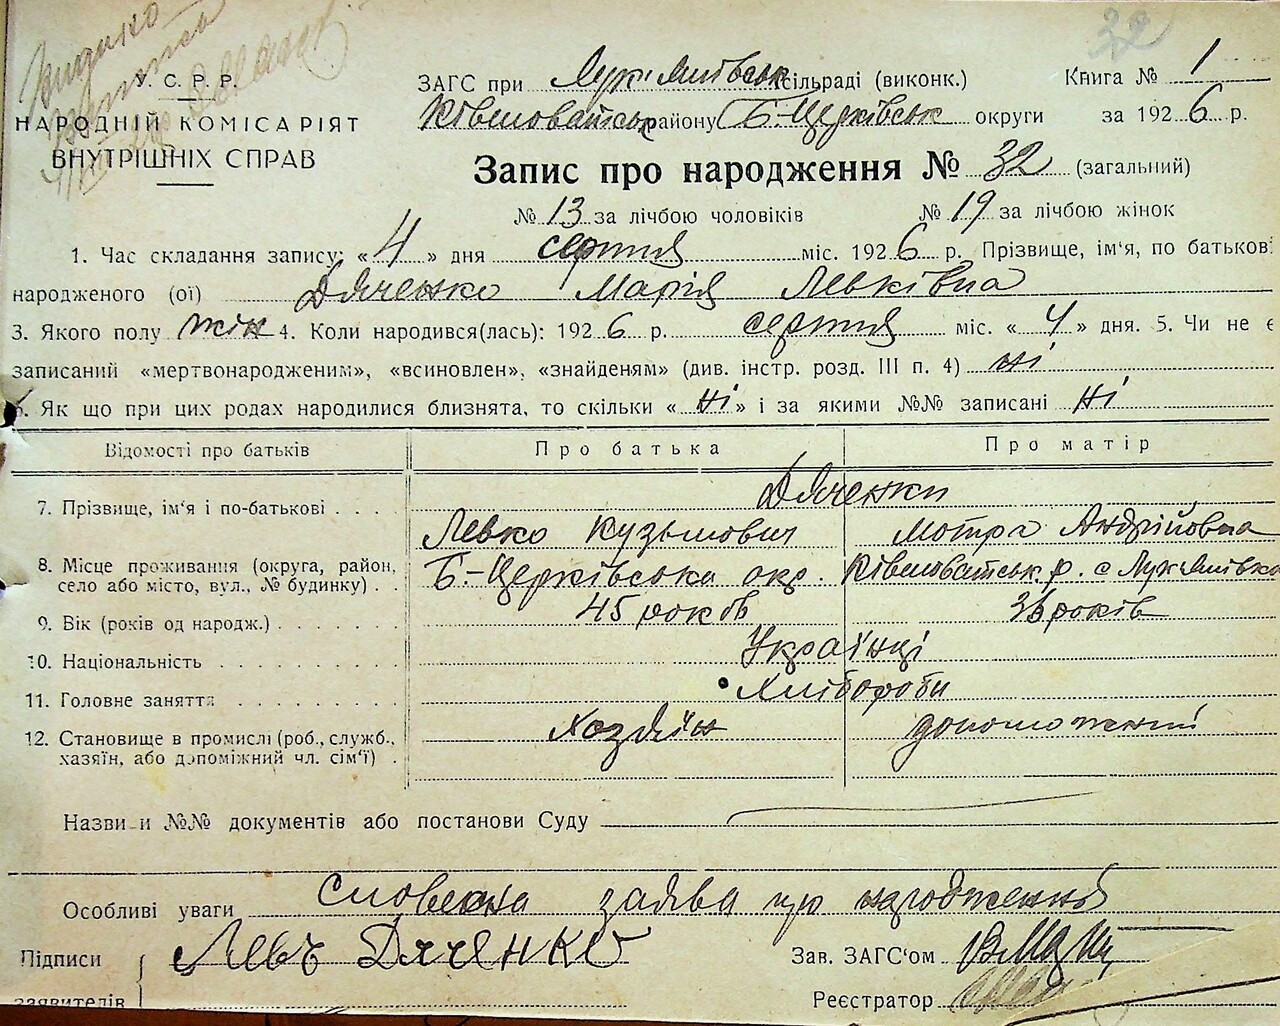 32
У. С. Р. Р.
НАРОДНІЙ КОМІСАРІЯТ
ВНУТРІШНІХ СПРАВ
ЗАГС при Лук'янівськ сільраді (виконк.) Книга № 1
Ківшоватськ району Б.-Церківськ округи за 1926 р.
Запис про народження № 32 (загальний)
№ 13 за лічбою чоловіків № 19 за лічбою жінок
1. Час складання запису: «4» дня серпня міс. 1926 р. Прізвище, ім'я, по батькові
народженого (ої) Дяченко Марія Левківна
3. Якого полу жін 4. Коли народився(лась): 1926 р. серпня міс. «4» дня. 5. Чи не є
записаний «мертвонародженим», «всиновлен», «знайденям» (див. інстр. розд. III п. 4) ні
6. Як що при цих родах народилися близнята, то скільки «ні» і за якими №№ записані ні
Відомості про батьків Про батька Про матір
7. Прізвище, ім'я і по-батькові . . . Дяченки
Левко Кузьмович Мотря Андрійовна
8. Місце проживання (округа, район, село або місто, вул., № будинку) . . Б.-Церківська окр. Ківшоватськ. р. с Лук'янівка
9. Вік (років од народж.) . . . . . 45 роков 36 років
10. Національність . . . . . . . . Українці
11. Головне заняття . . . . . . . Хлібороби
12. Становище в промислі (роб., служб., хазяїн, або допоміжний чл. сім'ї) . Хозяїн
Назви и №№ документів або постанови Суду
Особливі уваги Словесна заява про народження
Підписи Левъ Дяченко Зав. ЗАГС'ом
заявителів Реєстратор